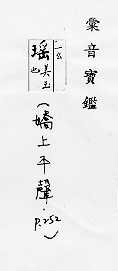 彙音寶鑑
瑤 美玉也
(嬌上平聲. P.252)